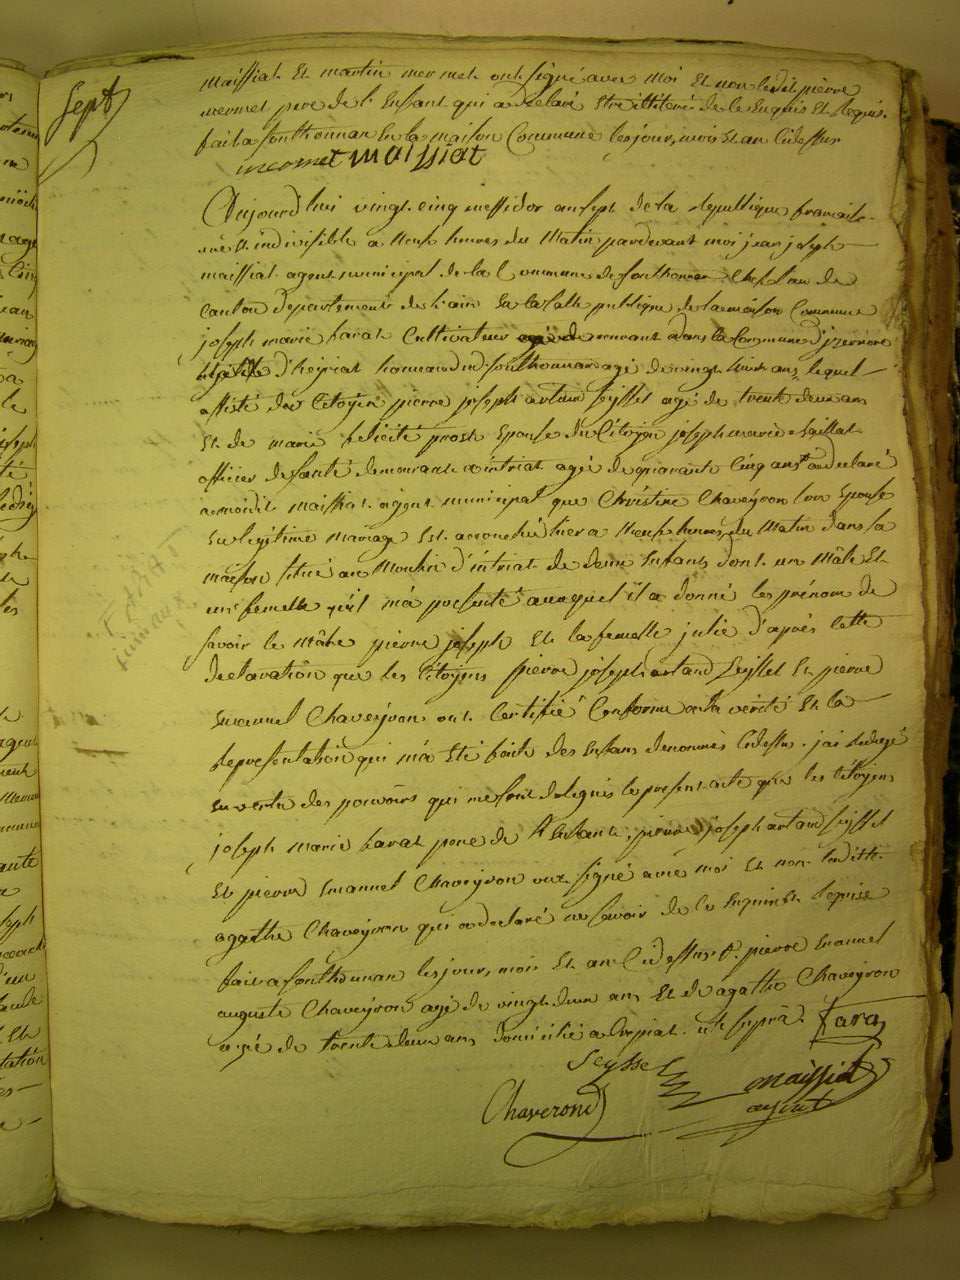 Sept
Maissiat Et martin mermet ont signé avec Moi Et non ledit pierre
mermet pere de l'Enfant qui a declaré Etre illiteré de ce Enquis Et Requis.
fait a sonthonnax En la maison Commune les jour, mois Et an Cidessus
mermet Maissiat
Aujourd'hui vingt Cinq messidor an sept de la Republique francaise
une Et indivisible a Neuf heures du Matin pardevant moi jean joseph
maissiat agent municipal de la Commune de sonthonnax Chef lieu de
Canton departement de l'ain En la salle publique de la maison Commune
joseph marie favat Cultivateur demeurant dans la Commune d'izernore
d'heyriat hameau de sonthonnax agé de vingt huit ans, lequel
assisté de Citoyen pierre joseph artaud seyssel agé de trente deux ans
Et de marie felicité prost Epouse du Citoyen joseph marie Maillat
officier de santé demeurant a intriat agé de quarante Cinq ans a declaré
a moidit Maissiat agent municipal que Christine Chaveyron son Epouse
En legitime Mariage Est accouchée hier a Neuf heures du Matin dans la
maison située au Moulin d'intriat de deux Enfants dont un Mâle Et
une femelle qu'il m'a presenté auxquel il a donné les prénoms de
savoir le Mâle pierre joseph Et la femelle julie d'après Cette
declaration que les Citoyens pierre joseph artaud Seyssel Et pierre
Emanuel Chaveyron ont Certifié Conforme a la verité Et la
Representation qui m'a Eté faite des Enfans denommés Cidessus. j'ai Redigé
En vertu des pouvoirs qui me sont delegués le present acte que les Citoyens
joseph Marie favat pere de l'Enfant, pierre joseph artaud seyssel
Et pierre Emanuel Chaveyron ont signé avec moi Et non laditte
agathe Chaveyron qui a declaré ne savoir de ce Enquise Et Requise
fait a sonthonnax les jour, mois Et an Cidessus pierre Emanuel
auguste Chaveyron agé de vingt deux ans Et de agathe Chaveyron
agé de trente deux ans domicilié a ut supra. favas
Seyssel Maissiat
agent
Chaveron